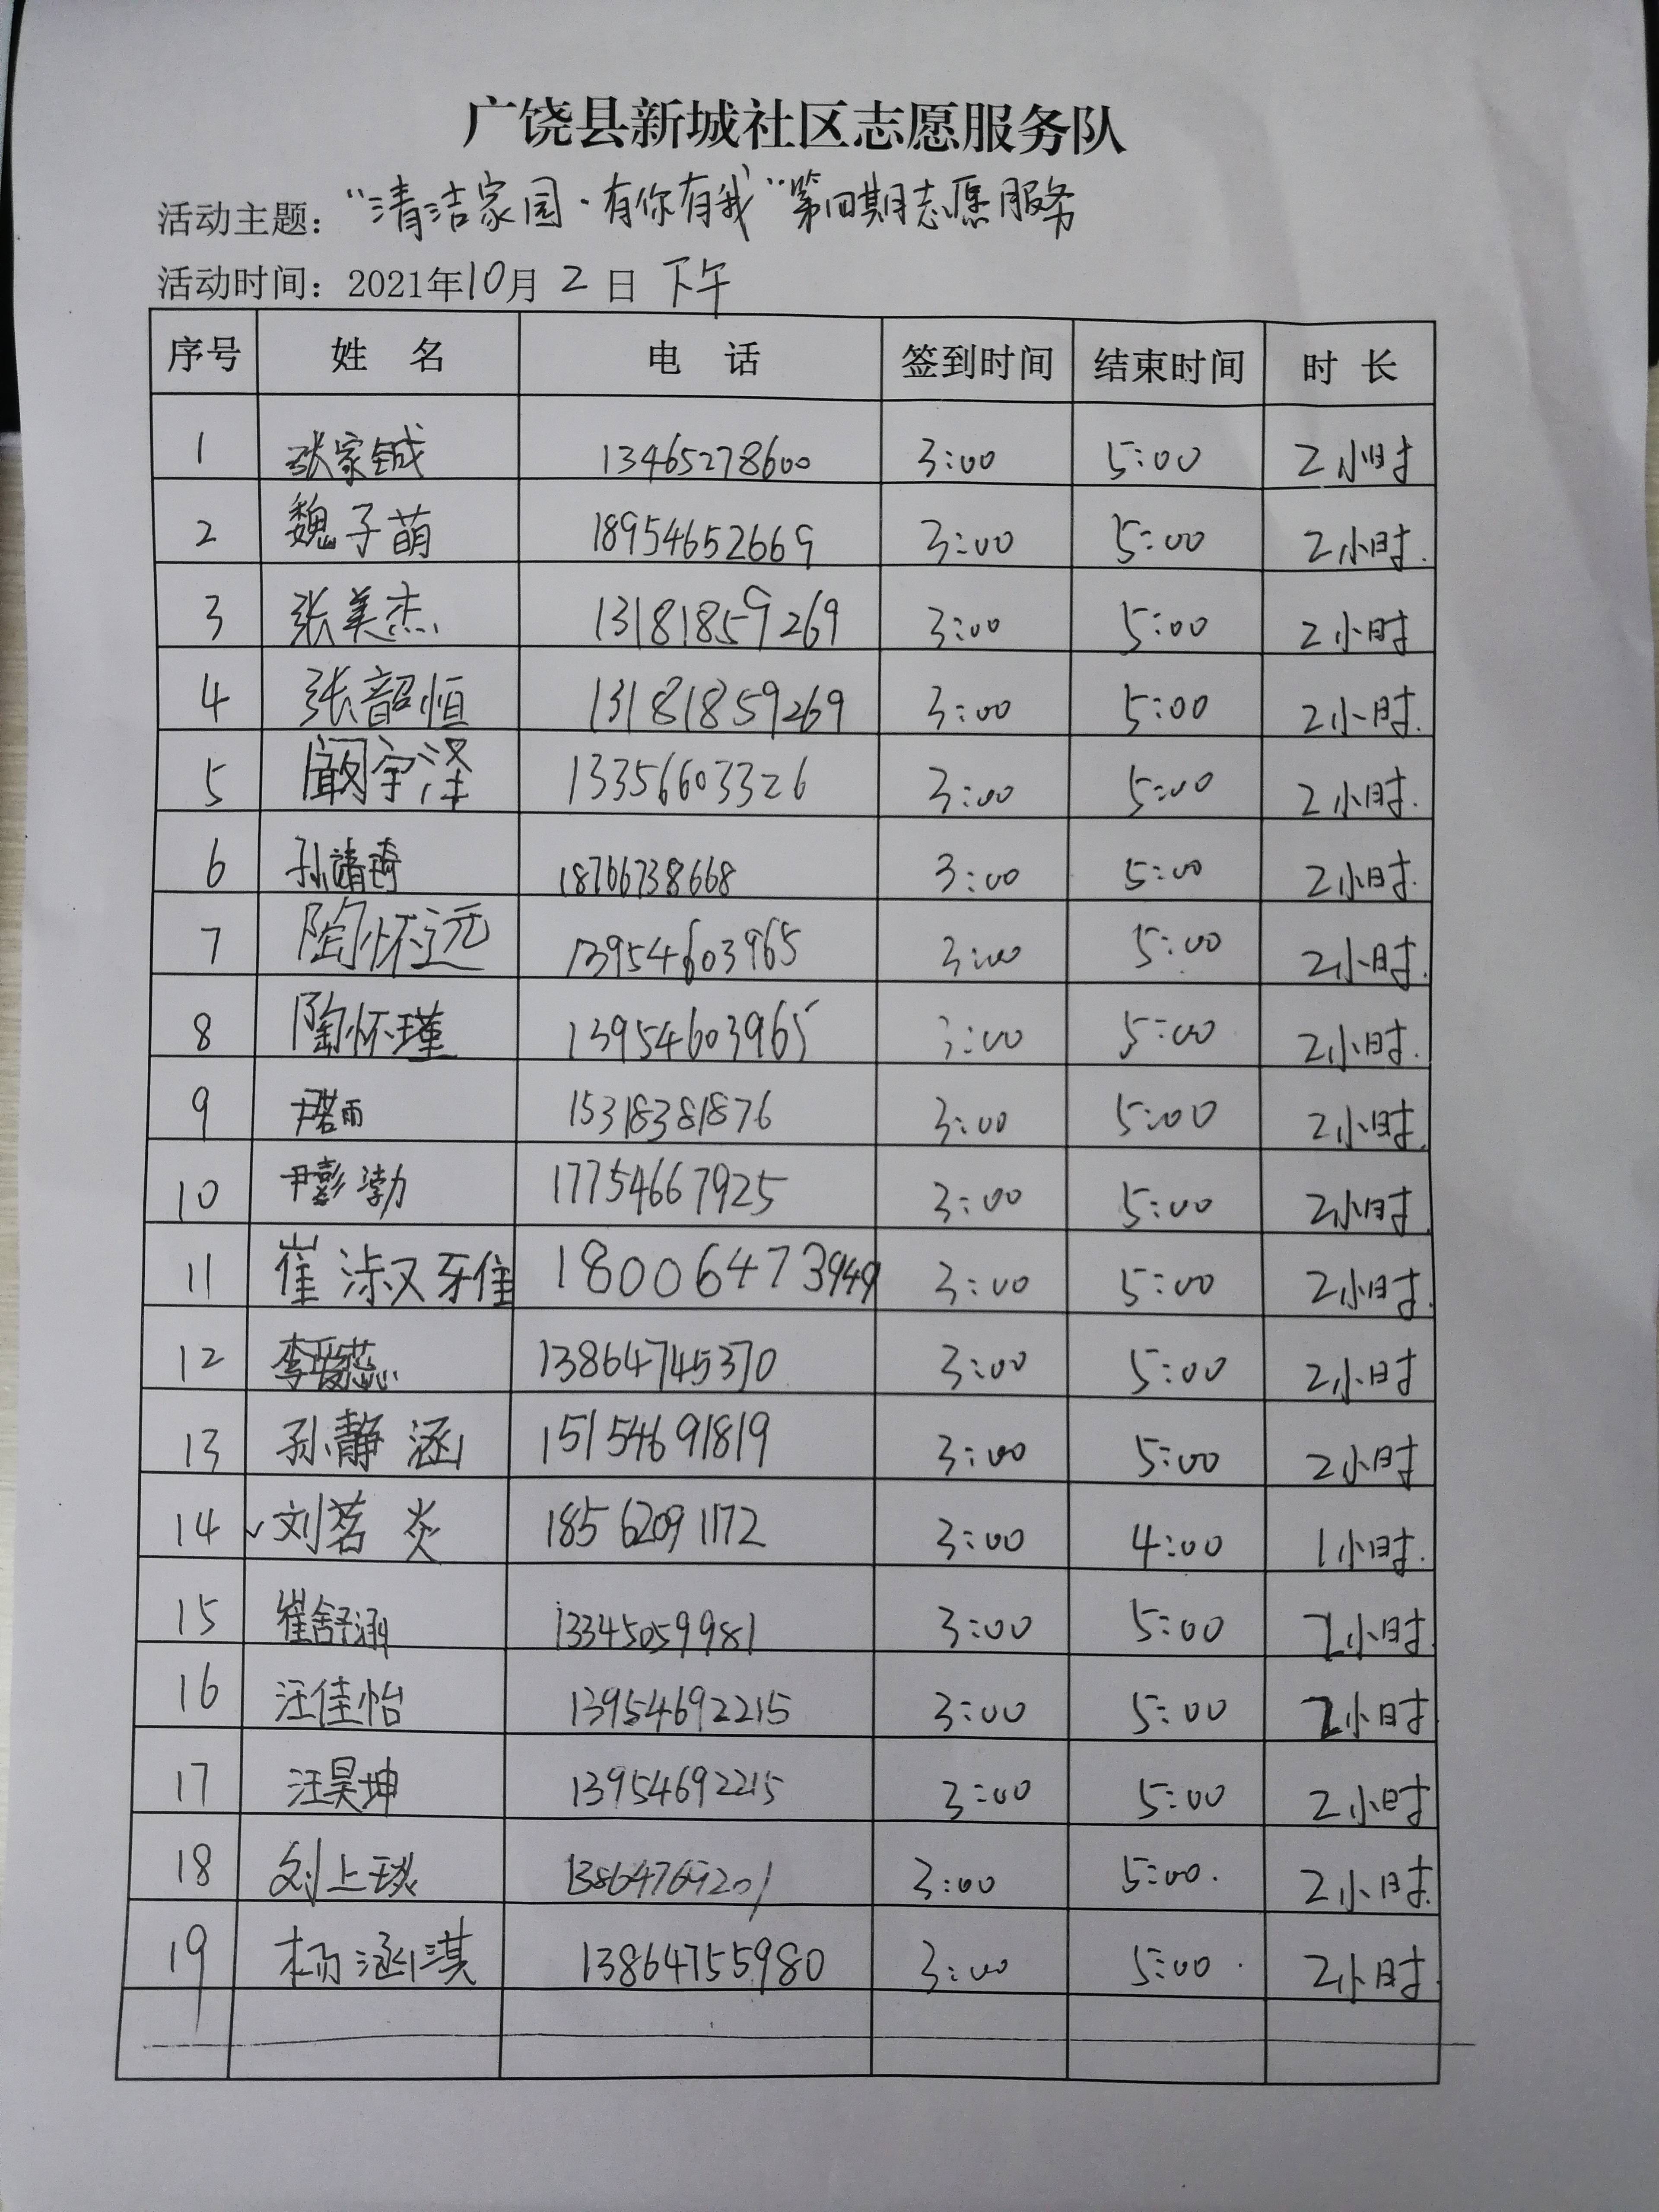 广饶县新城社区志愿服务队
活动主题：“清洁家园·有你有我”第四期志愿服务
活动时间：2021年10月2日 下午
序号 姓名 电话 签到时间 结束时间 时长
1 张家铖 13465278600 3:00 5:00 2小时
2 魏子萌 18954652669 3:00 5:00 2小时.
3 张美杰 13181859269 3:00 5:00 2小时
4 张韶恒 13181859269 3:00 5:00 2小时.
5 阚宇泽 13356603326 3:00 5:00 2小时.
6 孙靖琦 18766738668 3:00 5:00 2小时.
7 陶怀远 13954603965 3:00 5:00 2小时.
8 陶怀瑾 13954603965 3:00 5:00 2小时.
9 尹若雨 15318381876 3:00 5:00 2小时.
10 尹彭渤 17754667925 3:00 5:00 2小时.
11 崔淑雅 18006473949 3:00 5:00 2小时.
12 李瑷蕊 13864745370 3:00 5:00 2小时
13 孙静涵 15154691819 3:00 5:00 2小时
14 刘茗炎 18562091172 3:00 4:00 1小时.
15 崔舒涵 13345059981 3:00 5:00 2小时.
16 汪佳怡 13954692215 3:00 5:00 2小时
17 汪昊坤 13954692215 3:00 5:00 2小时
18 刘上琰 13864769201 3:00 5:00. 2小时.
19 杨涵淇 13864755980 3:00 5:00. 2小时.